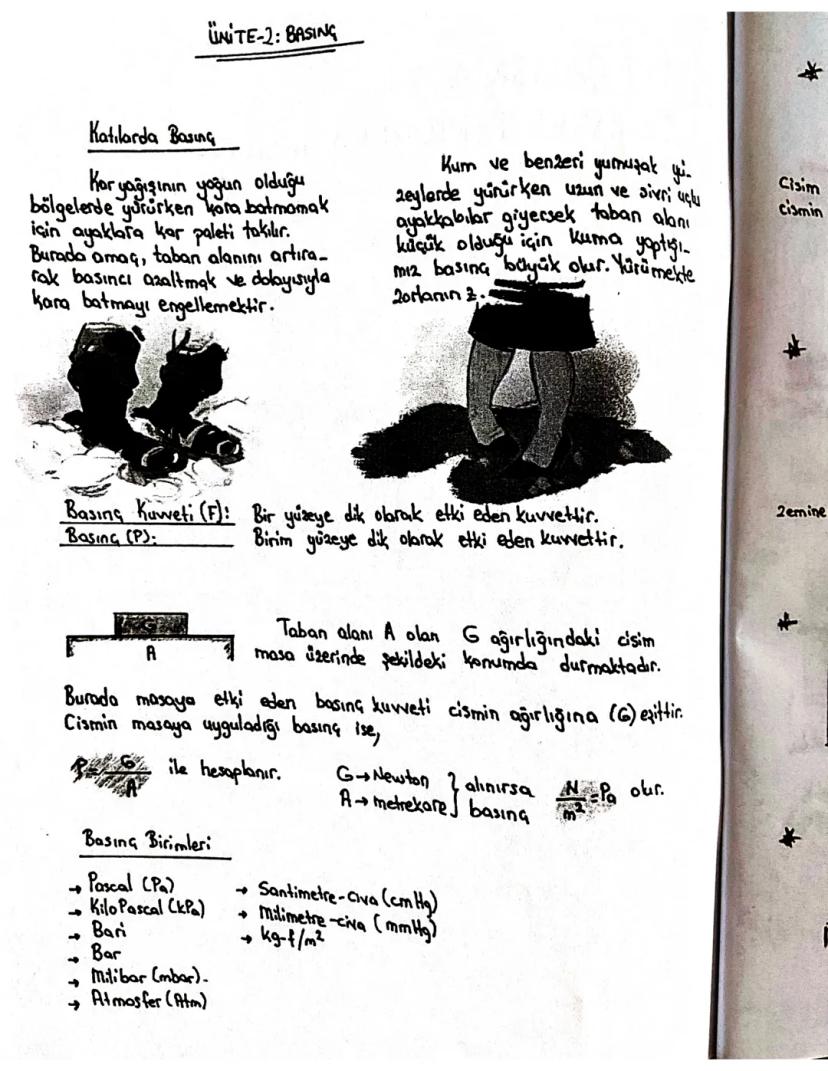 ÜNİTE-2: BASINÇ
Katılarda Basınç
Kar yağışının yoğun olduğu
bölgelerde yürürken kara batmamak
için ayaklara kar paleti takılır.
Burada amaç, taban alanını artıra-
rak basıncı azaltmak ve dolayısıyla
kara batmayı engellemektir.
Kum ve benzeri yumuşak yü-
zeylerde yürürken uzun ve sivri uçlu
ayakkabılar giyersek taban alanı
küçük olduğu için kuma yaptığı-
mız basınç büyük olur. Yürümekte
zorlanırız.
Basınç Kuvveti (F): Bir yüzeye dik olarak etki eden kuvvettir.
Basınç (P): Birim yüzeye dik olarak etki eden kuvvettir.
G
A
Taban alanı A olan G ağırlığındaki cisim
masa üzerinde şekildeki konumda durmaktadır.
Burada masaya etki eden basınç kuvveti cismin ağırlığına (G) eşittir.
Cismin masaya uyguladığı basınç ise,
P = G/A ile hesaplanır.
G → Newton
A → metrekare } alınırsa basınç N/m² = Pa olur.
Basınç Birimleri
→ Pascal (Pa)
→ KiloPascal (kPa)
→ Bari
→ Bar
→ Milibar (mbar).
→ Atmosfer (Atm)
→ Santimetre-civa (cmHg)
→ Milimetre-civa (mmHg)
→ kg-f/m²
*
Cisim
cismin
*
zemine
*
*